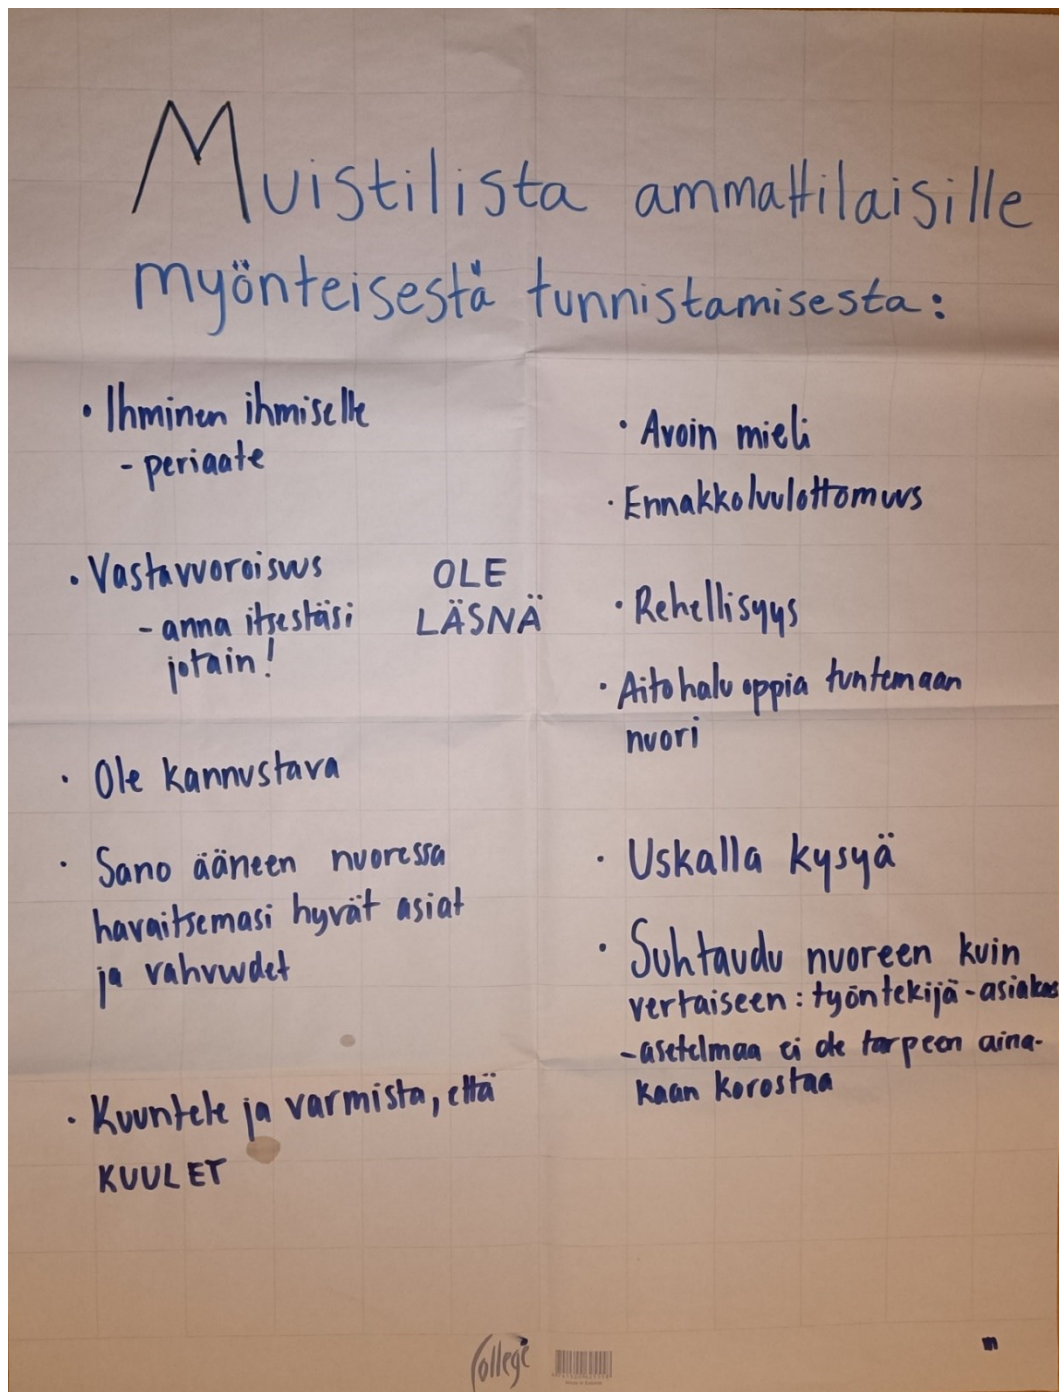 Muistilista ammattilaisille
myönteisestä tunnistamisesta:
• Ihminen ihmiselle
- periaate
• Vastavuoroisuus
- anna itsestäsi
jotain!
• Ole kannustava
• Sano ääneen nuoressa
havaitsemasi hyvät asiat
ja vahvuudet
• Kuuntele ja varmista, että
KUULET
OLE
LÄSNÄ
• Avoin mieli
• Ennakkoluulottomuus
• Rehellisyys
• Aito halu oppia tuntemaan
nuori
• Uskalla kysyä
• Suhtaudu nuoreen kuin
vertaiseen: työntekijä-asiakas
-asetelmaa ei ole tarpeen aina-
kaan korostaa
College